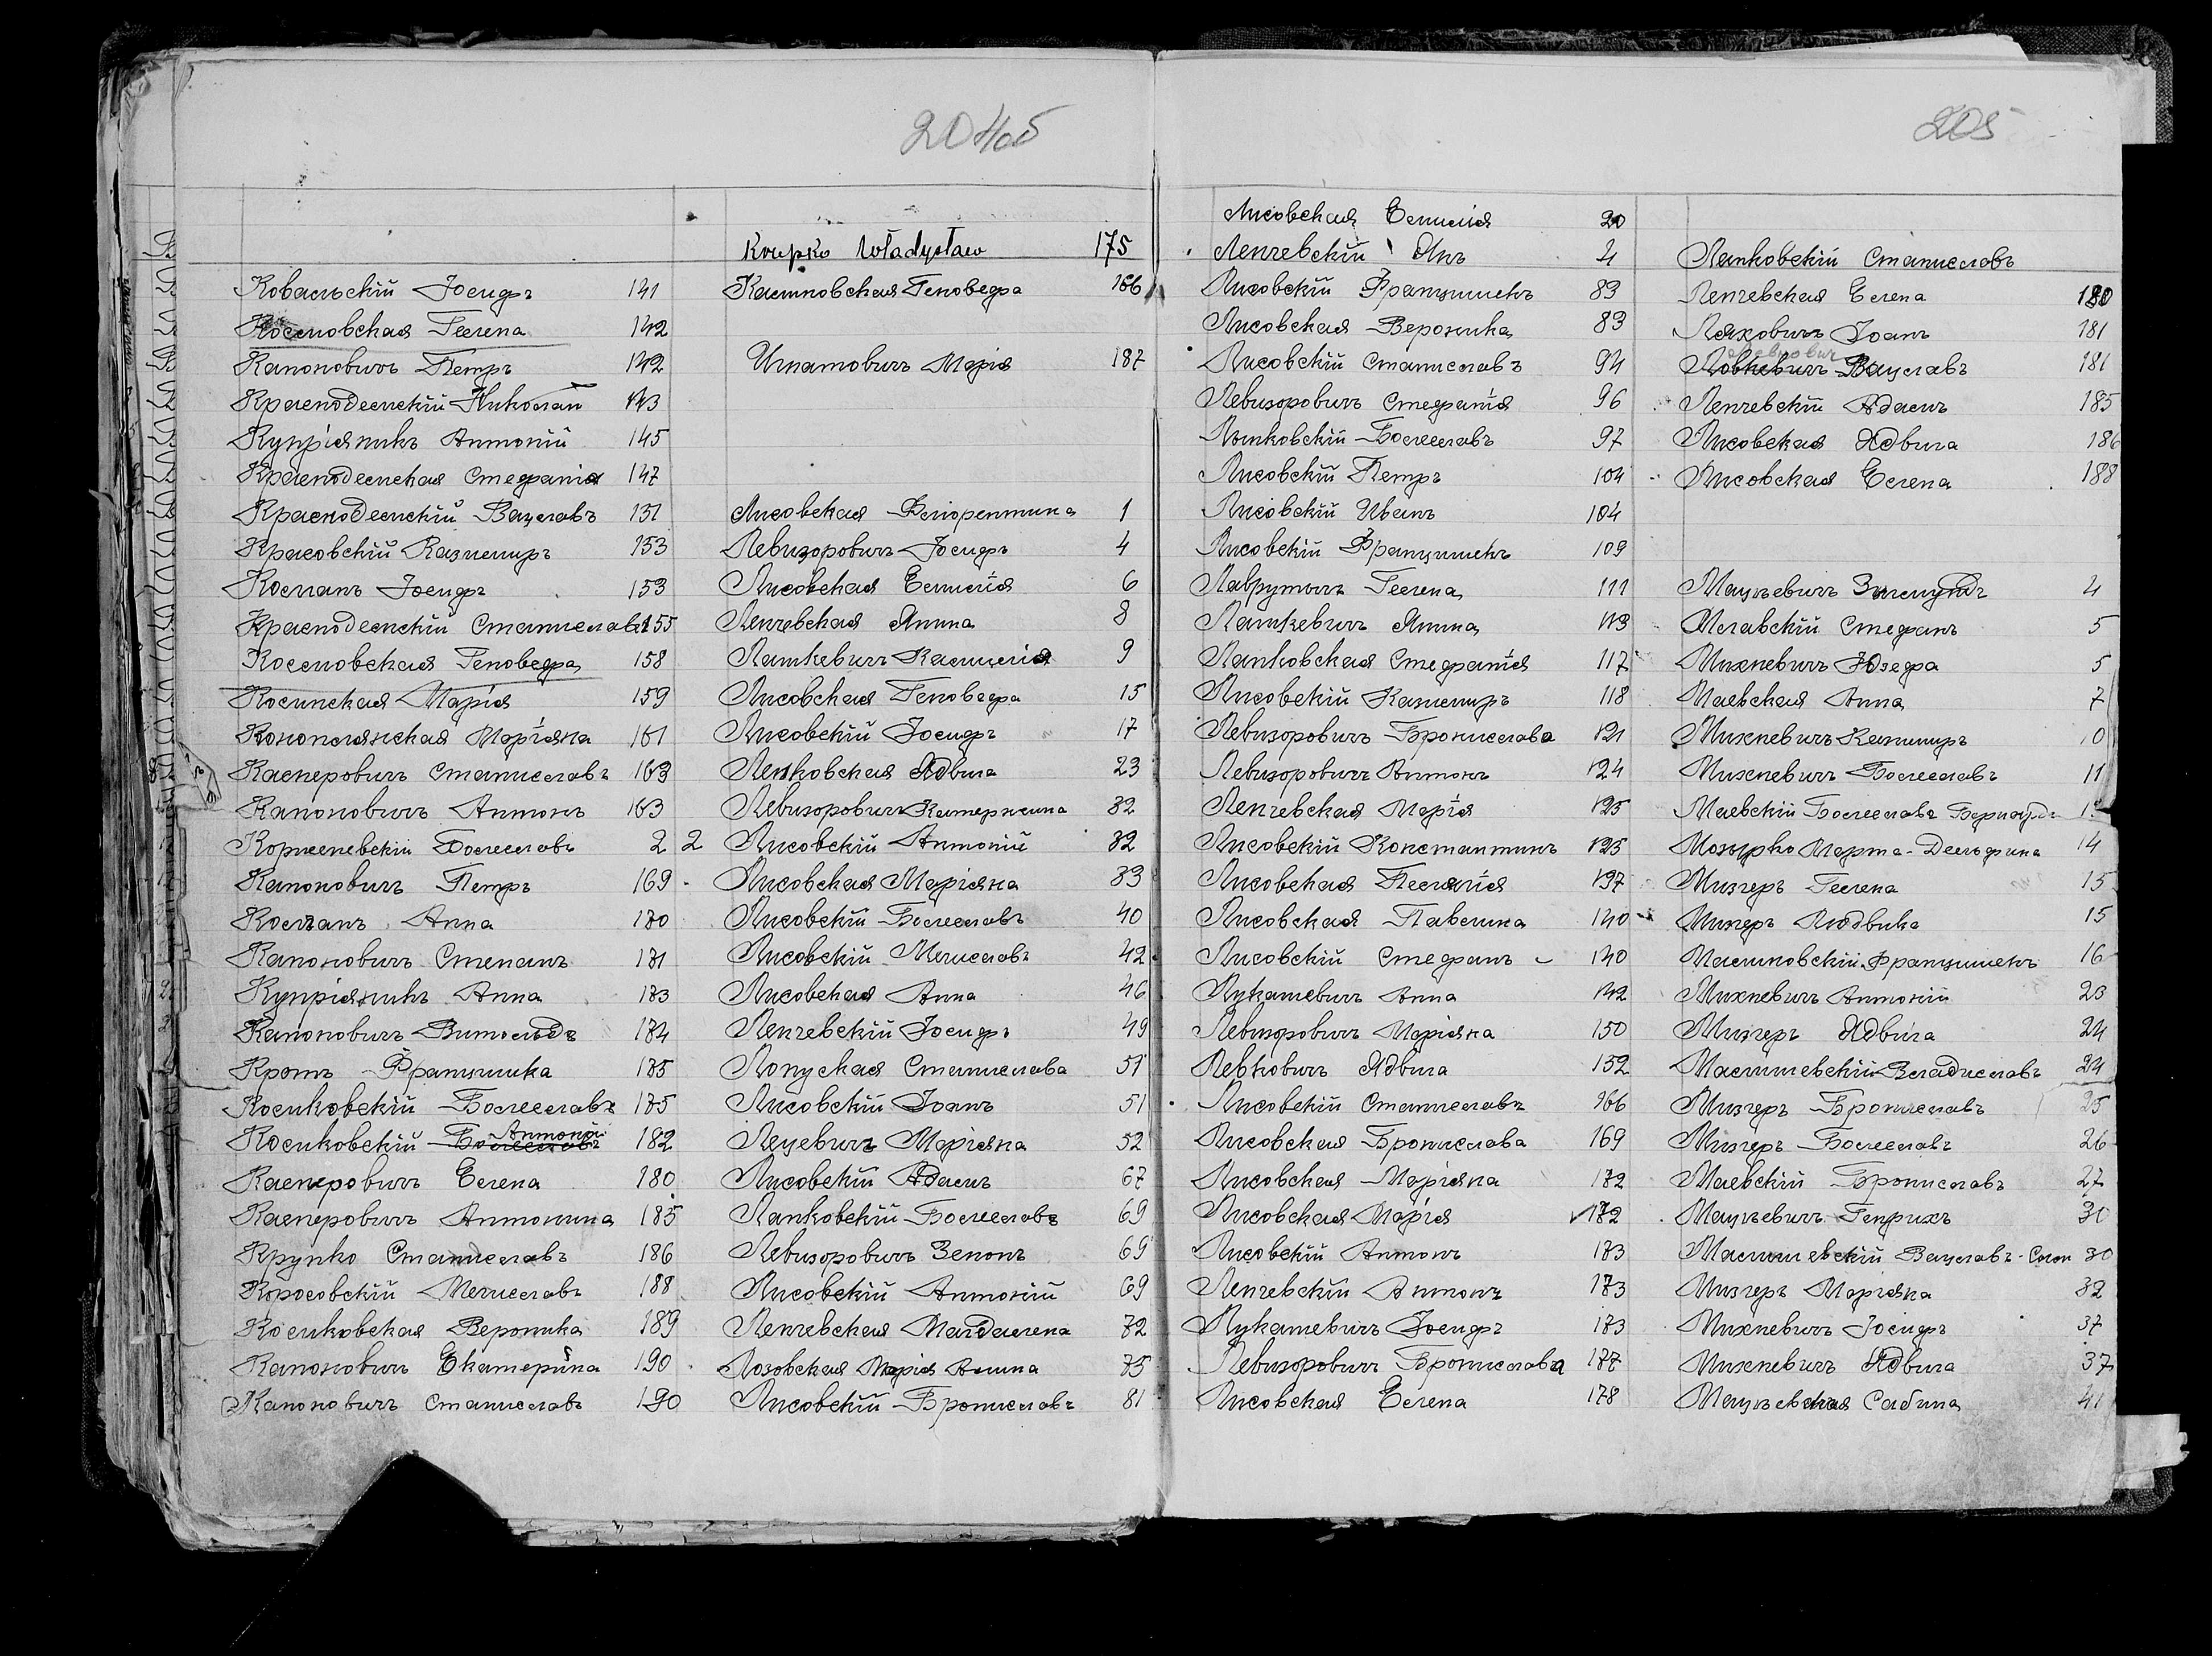 204об
Ковальскій Іосифъ 141
Козловская Гелена 142
Капоновичъ Петръ 142
Краснодемскій Николай 143
Купріяникъ Антоній 145
Краснодемская Стефанія 147
Краснодемскій Вацлавъ 151
Красовскій Казимиръ 153
Колпанъ Іосифъ 153
Краснодемскій Станиславъ 155
Козловская Геновефа 158
Косинская Марія 159
Кононлянская Маріяна 161
Касперовичъ Станиславъ 163
Капоновичъ Антонъ 163
Корженевскій Болеславъ 2 2
Капоновичъ Петръ 169
Колпанъ Анна 170
Капоновичъ Степанъ 171
Купріяникъ Анна 173
Капоновичъ Витольдъ 174
Кротъ Францишка 175
Косиковскій Болеславъ 175
Косиковскій Антоній 182
Касперовичъ Елена 180
Касперовичъ Антонина 185
Крупко Станиславъ 186
Коросовскій Мечиславъ 188
Косиковская Вероника 189
Капоновичъ Екатерина 190
Капоновичъ Станиславъ 190
Krupko Władysław 175
Геновефа 166
Игнатовичъ Марія 187
Лисовская Флорентина 1
Левизоровичъ Іосифъ 4
Лисовская Емилія 6
Ленчевская Янина 8
Латкевичъ Камилія 9
Лисовская Геновефа 15
Лисовскій Іосифъ 17
Ленковская Ядвига 23
Левизоровичъ Катержина 32
Лисовскій Антоній 32
Лисовская Маріяна 33
Лисовскій Болеславъ 40
Лисовскій Мечиславъ 42
Лисовская Анна 46
Ленчевскій Іосифъ 49
Лопуская Станислава 51
Лисовскій Іоанъ 51
Лецевичъ Маріяна 52
Лисовскій Адамъ 67
Лапковскій Болеславъ 69
Левизоровичъ Зенонъ 69
Лисовскій Антоній 69
Ленчевская Магдалена 72
Лозовская Марія Янина 75
Лисовскій Брониславъ 81
205
Лисовская Емилія 20
Ленчевскій Янъ 4
Лисовскій Францишекъ 83
Лисовская Вероника 83
Лисовскій Станиславъ 94
Левизоровичъ Стефанія 96
Лычковскій Болеславъ 97
Лисовскій Петръ 104
Лисовскій Иванъ 104
Лисовскій Францишекъ 109
Лаврутичъ Гелена 111
Латкевичъ Янина 113
Лапковская Стефанія 117
Лисовскій Казимиръ 118
Левизоровичъ Бронислава 121
Левизоровичъ Антонъ 124
Ленчевская Марія 125
Лисовскій Константинъ 125
Лисовская Пелагія 137
Лисовская Павлина 140
Лисовскій Стефанъ 140
Лукашевичъ Анна 142
Левизоровичъ Маріяна 150
Левковичъ Ядвига 152
Лисовскій Станиславъ 166
Лисовская Бронислава 169
Лисовская Маріяна 172
Лисовская Марія 172
Лисовскій Антонъ 173
Ленчевскій Антонъ 173
Лукашевичъ Іосифъ 173
Левизоровичъ Бронислава 177
Лисовская Елена 178
Лапковскій Станиславъ
Ленчевская Елена 180
Ляховичъ Іоанъ 181
Вацлавъ 181
Ленчевскій Адамъ 185
Лисовская Ядвига 186
Лисовская Елена 188
Мацкевичъ Зигмундъ 4
Мглавскій Стефанъ 5
Михневичъ Юзефа 5
Маевская Анна 7
Михневичъ Казимиръ 10
Михневичъ Болеславъ 11
Маевскій Болеславъ Бернардъ
Мозырко Марта-Дельфина 14
Мизгеръ Гелена 15
Мизгеръ Людвика 15
Маслиновскій Францишекъ 16
Михневичъ Антоній 23
Мизгеръ Ядвига 24
Владиславъ 24
Мизгеръ Брониславъ 25
Мизгеръ Болеславъ 26
Маевскій Брониславъ 27
Мацкевичъ Генрихъ 30
Вацлавъ 30
Мизгеръ Маріяна 32
Михневичъ Іосифъ 37
Михневичъ Ядвига 37
Мацкевская Сабина 41